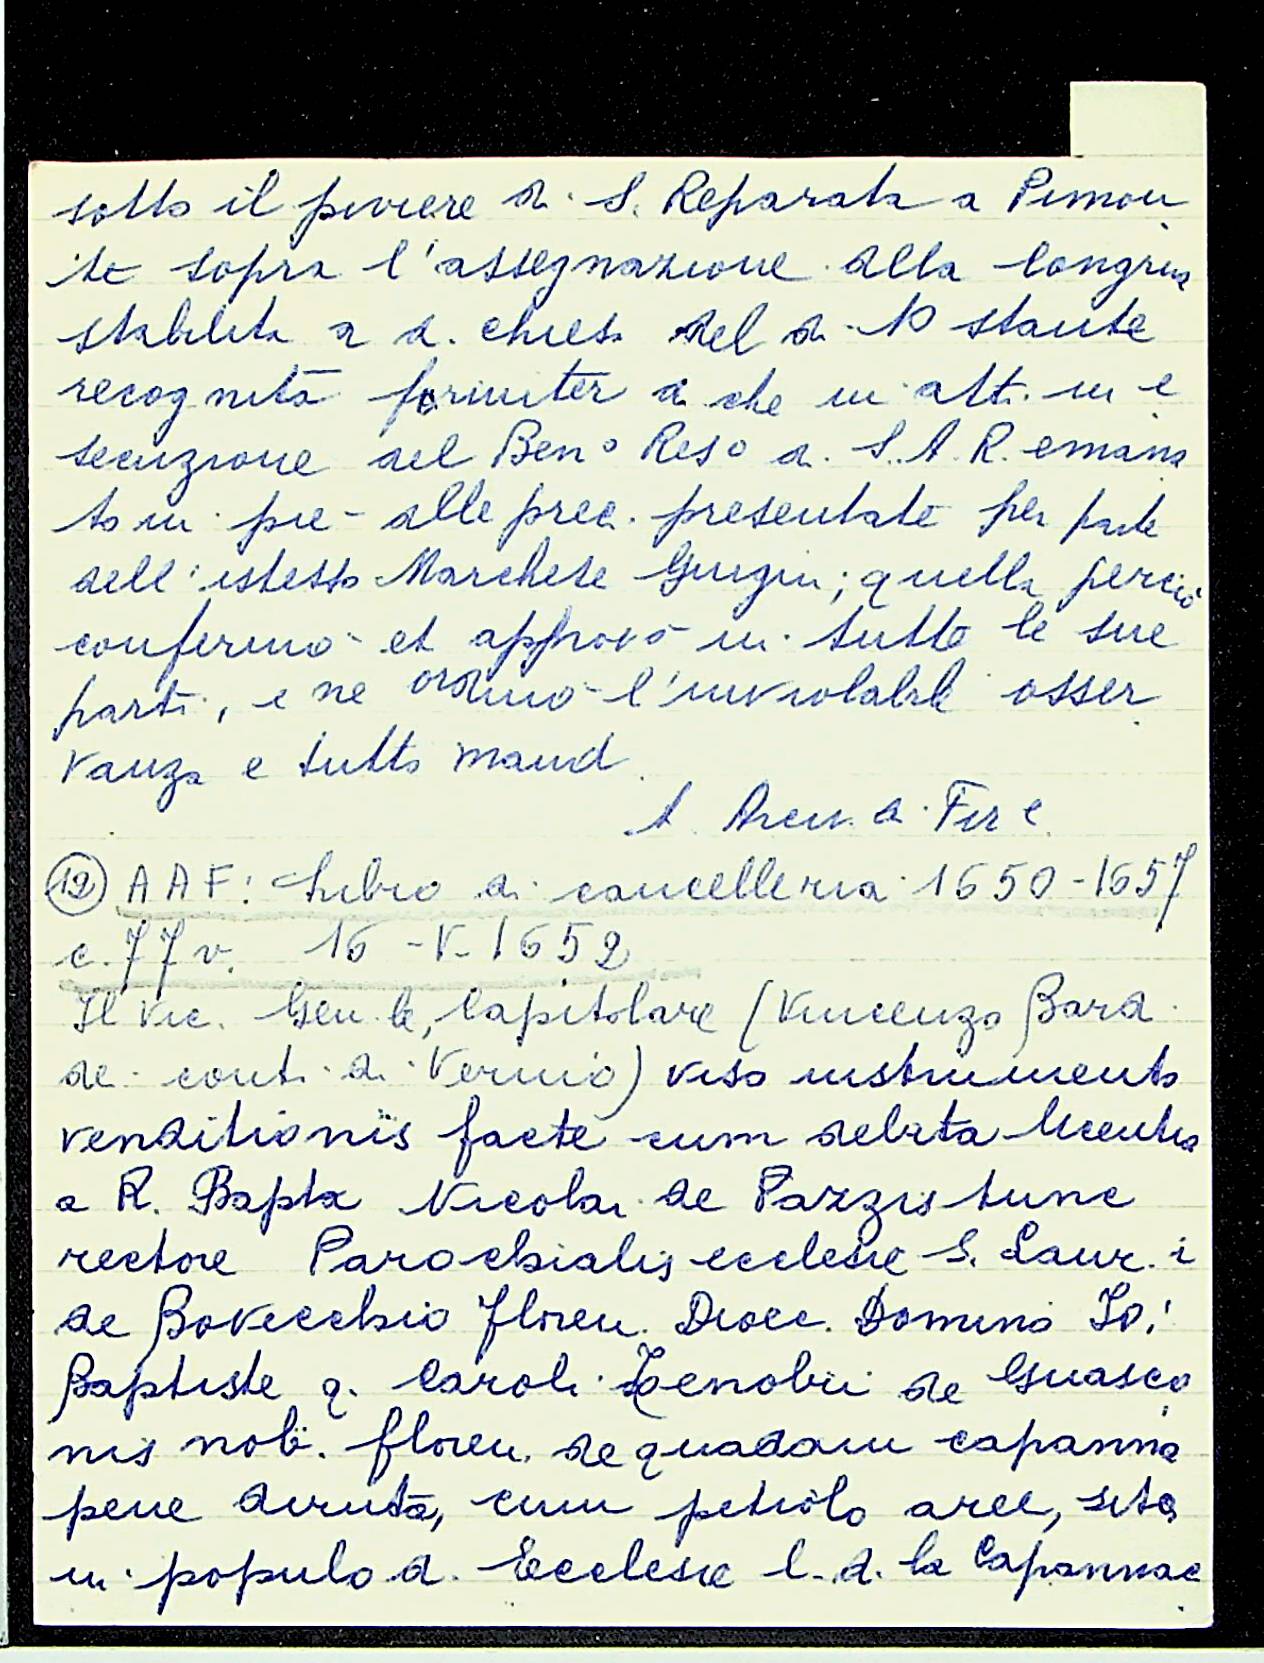 sotto il piviere di S. Reparata a Pimon
te sopra l'assegnazione della Congrua
stabilita a d. chiesa del d. P stante
recognità foriniter di che in atti in e
secuzione del Ben° Res° di S. A. R. emana
to in pie- delle prec. presentate per parte
dell'istesso Marchese Giugni; quella perciò
confermò et approvò in tutte le sue
parti, e ne ordinò l'inviolabile osser
vanza e tutto mand
A. Arciv. di Fire
(12) AAF: Libro di cancelleria 1650-1657
c. 77 v. 16-V-1652
Il Vic. Gen.le, Capitolare (Vincenzo Bardi
dei conti di Vernio) viso instrumento
venditionis facte cum debita licentia
a R. Bapta Nicolai de Pazzis tunc
rectore Parochialis ecclesie S. Laur. i
de Bovecchio floren. Dioec. Domino Io:
Baptiste q. Caroli Zenobii de Guasco
nis nob. floren. de quadam capanna
pene diruta, cum petiolo aree, sita
in populo d. Ecclesie l. d. la Capannac